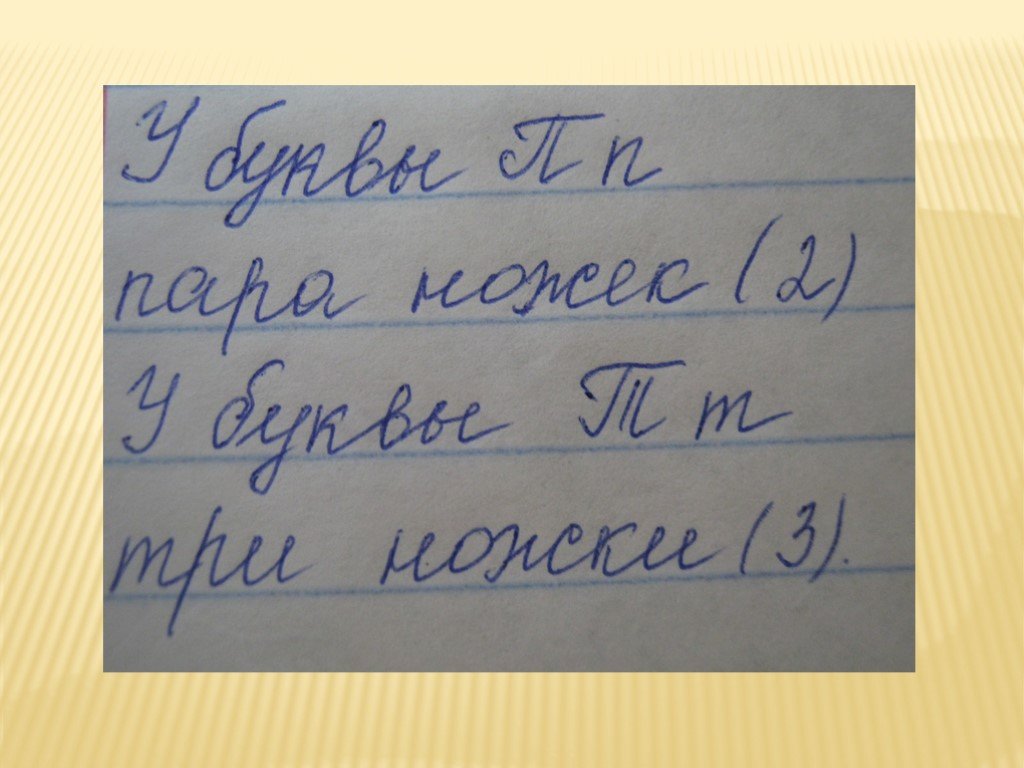 У буквы П п
пара ножек (2)
У буквы Т т
три ножки (3).